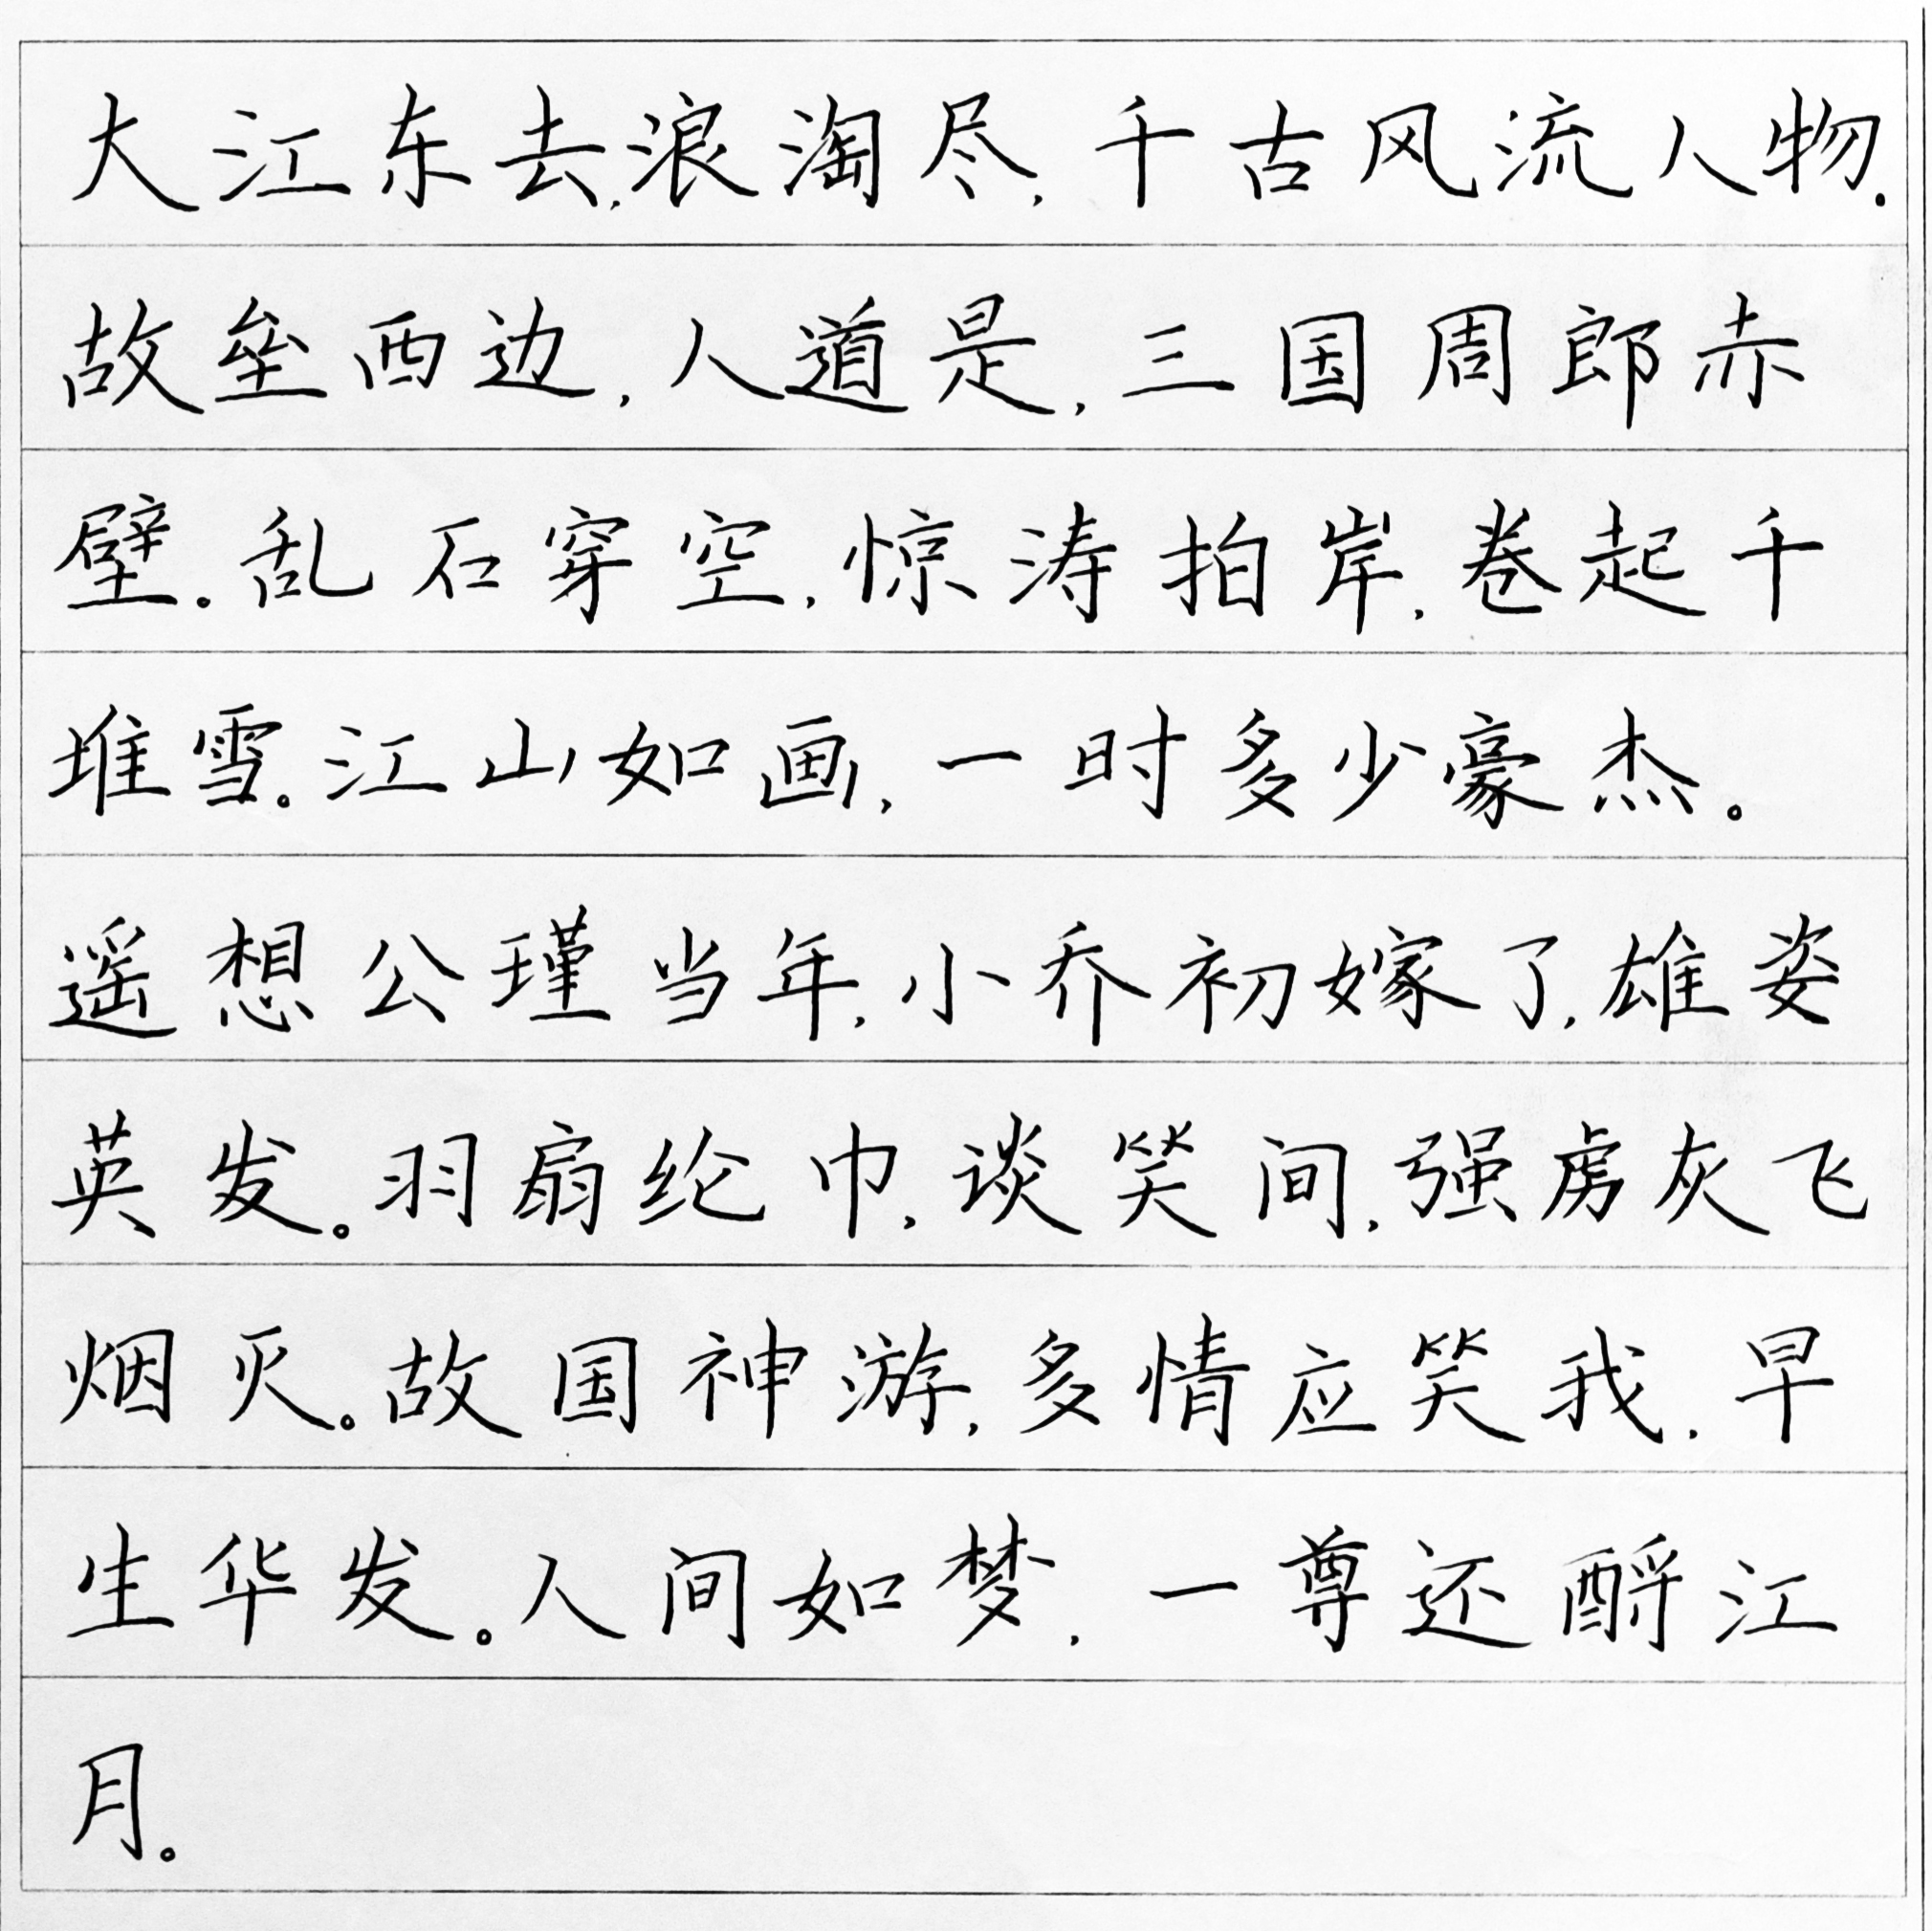 大江东去,浪淘尽,千古风流人物.
故垒西边,人道是,三国周郎赤
壁。乱石穿空,惊涛拍岸,卷起千
堆雪。江山如画,一时多少豪杰。
遥想公瑾当年,小乔初嫁了,雄姿
英发。羽扇纶巾,谈笑间,强虏灰飞
烟灭。故国神游,多情应笑我,早
生华发。人间如梦,一尊还酹江
月。